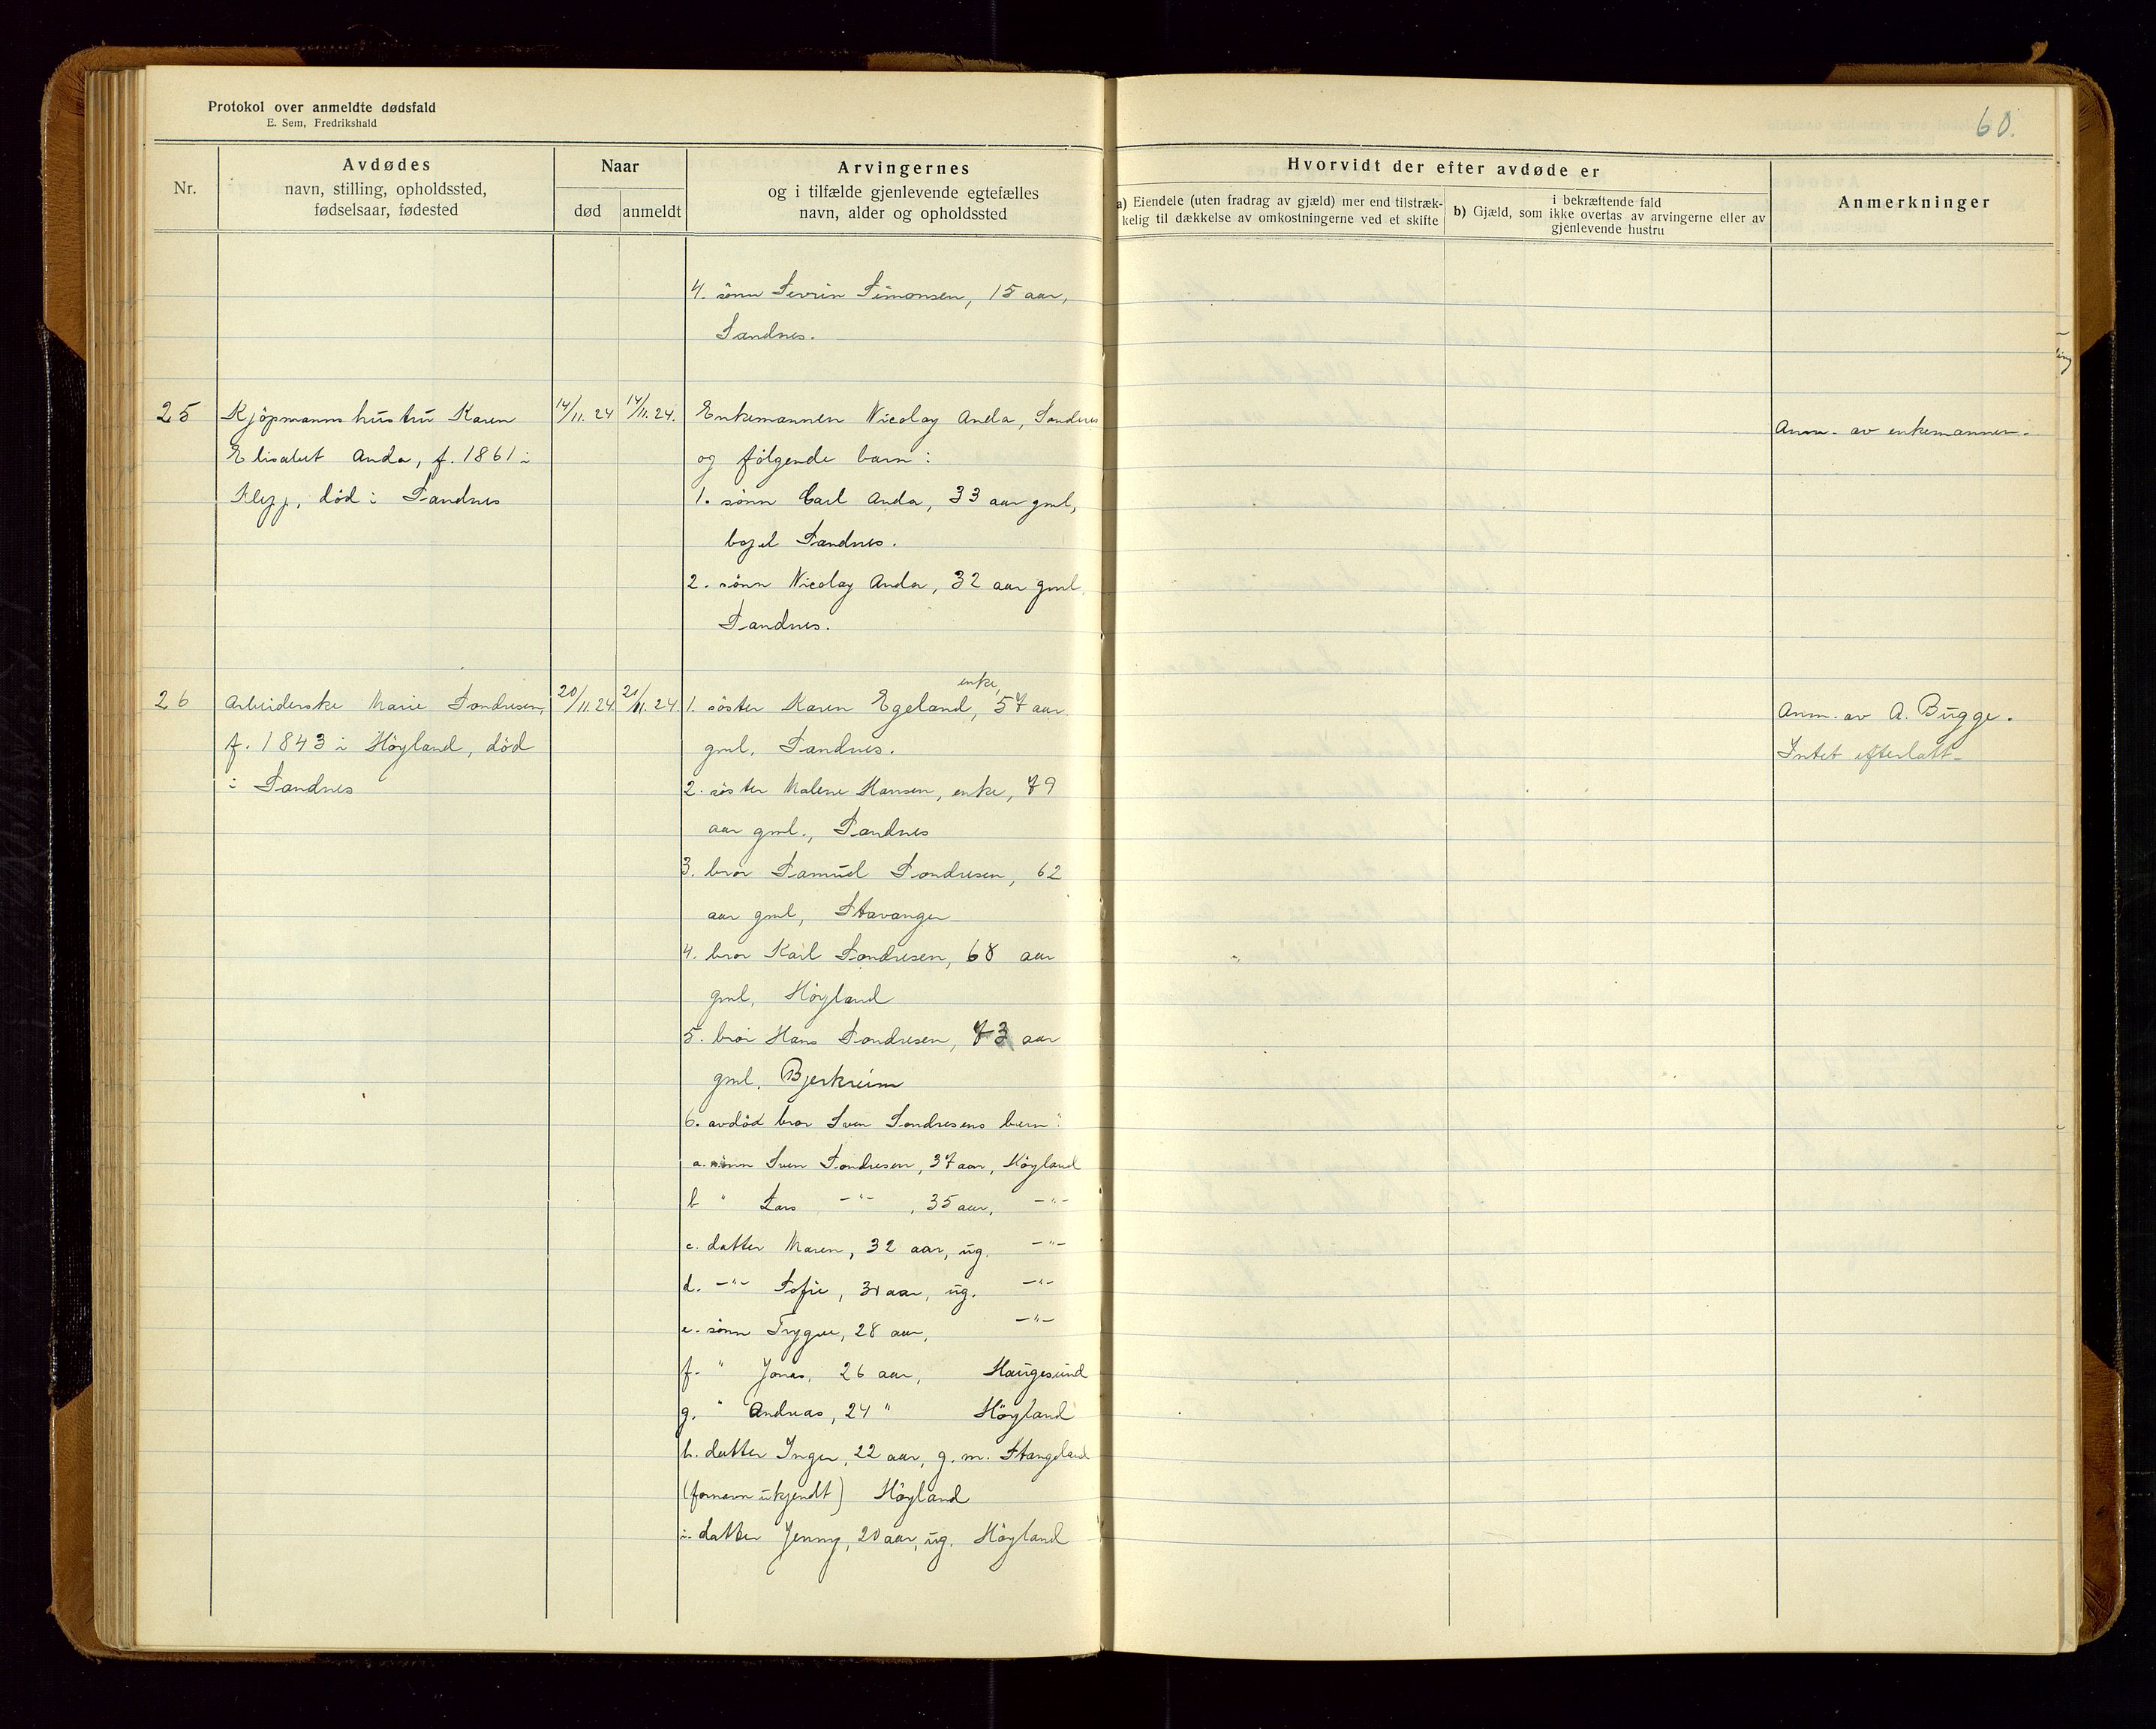 Protokol over anmeldte dødsfald
E. Sem, Fredrikshald
60.
Nr.
Avdødes
navn, stilling, opholdssted,
fødselsaar, fødested
Naar
død
anmeldt
Arvingernes
og i tilfælde gjenlevende egtefælles
navn, alder og opholdssted
Hvorvidt der efter avdøde er
a) Eiendele (uten fradrag av gjæld) mer end tilstræk-
kelig til dækkelse av omkostningerne ved et skifte
i bekræftende fald
b) Gjæld, som ikke overtas av arvingerne eller av
gjenlevende hustru
Anmerkninger
4. sønn Sevrin Simonsen, 15 aar,
Sandnes.
25
Kjøpmanns hustru Karen
Elisabet Anda, f. 1861 i
Klepp, død i Sandnes
14/11.24
14/11.24.
Enkemannen Nicolay Anda, Sandnes
og følgende barn:
1. sønn Carl Anda, 33 aar gml,
Sandnes.
2. sønn Nicolay Anda, 32 aar gml.
Sandnes.
Anm. av enkemannen.
26
Arbeiderske Marie Sondresen,
f. 1843 i Høyland, død
i Sandnes
20/11.24
21/11.24.
enke,
1. søster Karen Egeland, 57 aar
gml. Sandnes.
2. søster Malene Hansen, enke, 79
aar gml., Sandnes
3. bror Samuel Sondresen, 62
aar gml, Stavanger
4. bror Karl Sondresen, 68 aar
gml, Høyland
5. bror Hans Sondresen, 73 aar
gml. Bjerkreim
6. avdød bror Sven Sondresens barn:
a. sønn Sven Sondresen, 37 aar, Høyland
b " Lars -"- , 35 aar, -"-
c. datter Maren, 32 aar, ug. -"-
d. -"- Sofie, 31 aar, ug. -"-
e. sønn Trygve, 28 aar, -"-
f. " Jonas, 26 aar, Haugesund
g. " Andreas, 24 " Høyland
h. datter Inger, 22 aar, g. m. Stangeland
(fornavn ukjendt) Høyland
i. datter Jenny, 20 aar, ug. Høyland
Anm. av A. Bugge.
Intet efterlatt.